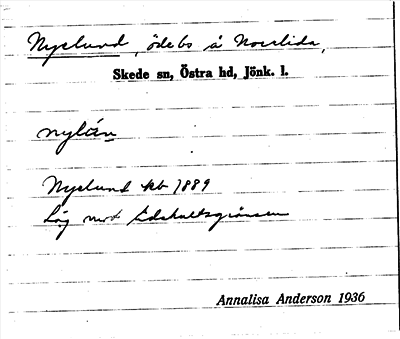 Nyelund, ödebo å Norrlida,
Skede sn, Östra hd, Jönk. l.
Nyelund kb 1889
Låg mot Lidshultsgränsen
Annalisa Anderson 1936